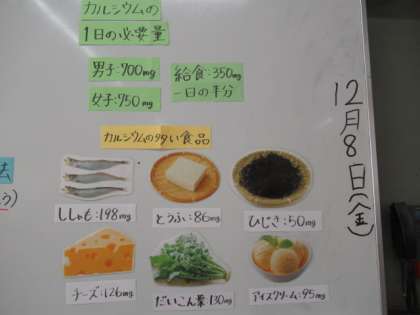 カルシウムの
1日の必要量
男子:900mg
女子:750mg
給食:350mg
一日の半分
12月8日(金)
カルシウムの多い食品
ししゃも:198mg
とうふ:86mg
ひじき:50mg
チーズ:126mg
だいこん葉130mg
アイスクリーム:95mg